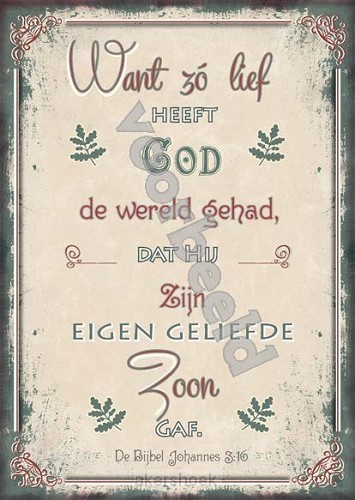 Want zó lief
HEEFT
GOD
de wereld gehad,
DAT HIJ
Zijn
EIGEN GELIEFDE
Zoon
GAF.
De Bijbel Johannes 3:16
voorbeeld
akershoek